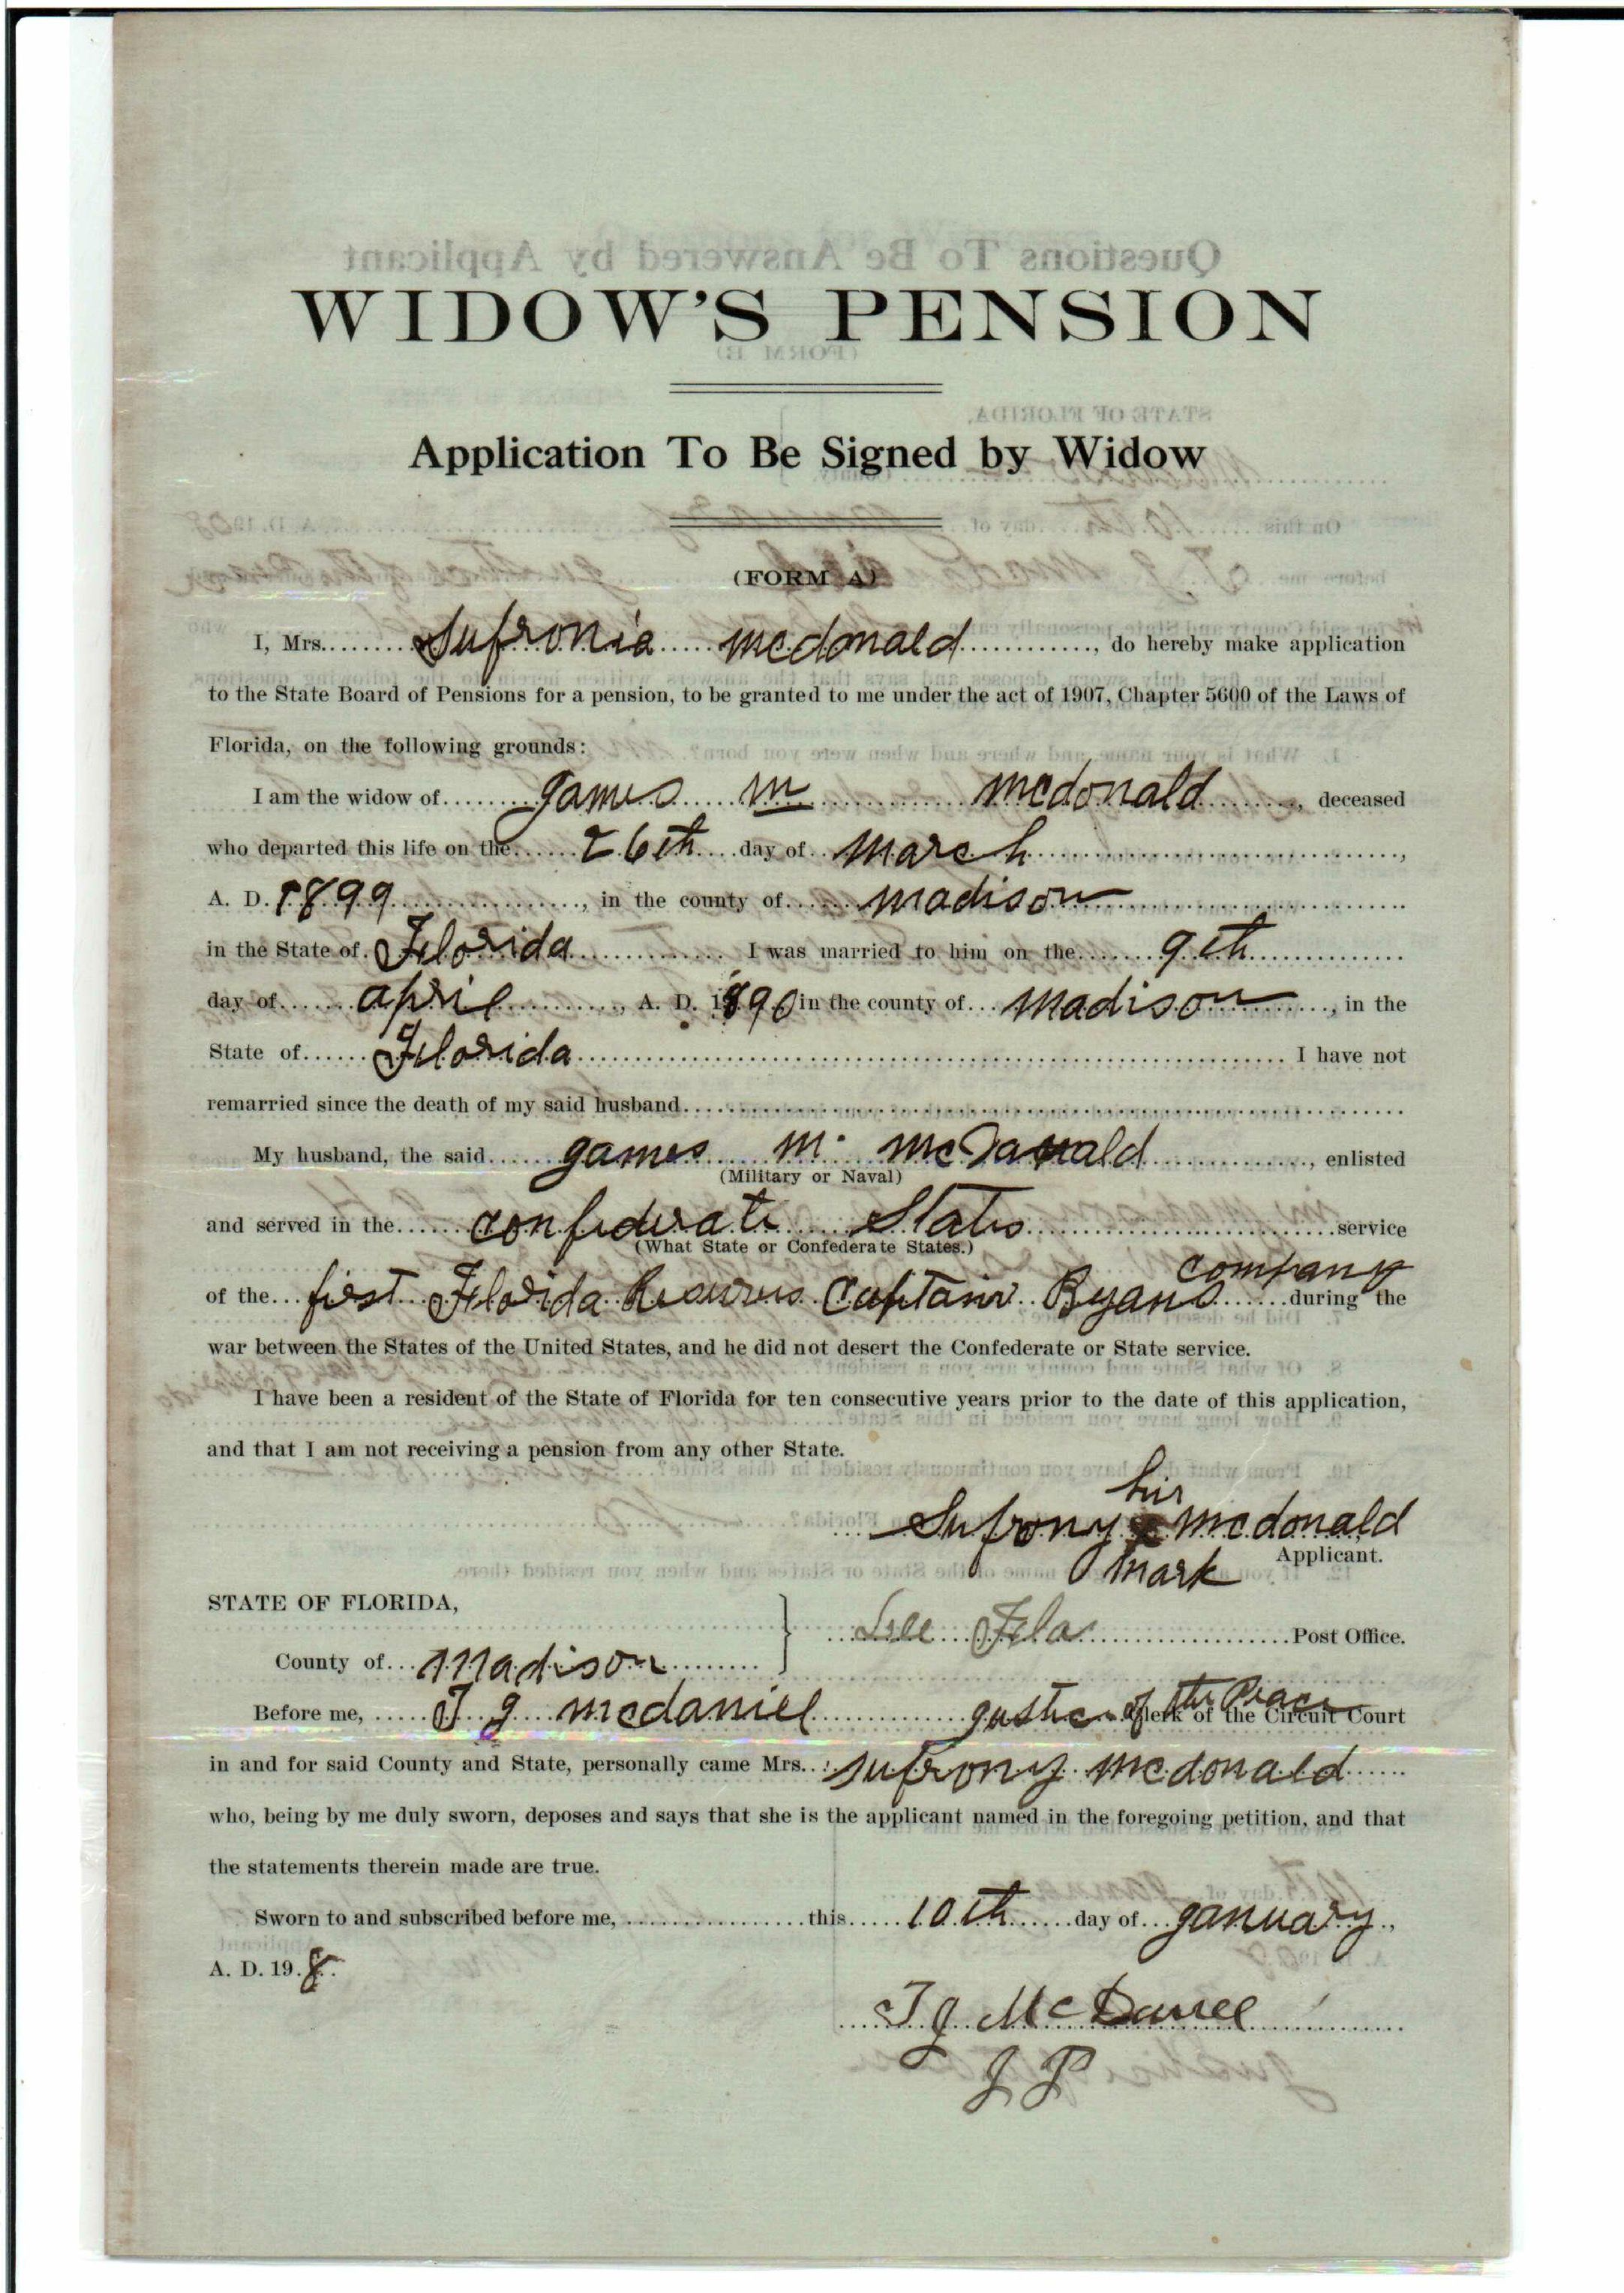 WIDOW'S PENSION
Application To Be Signed by Widow
(FORM A)
I, Mrs. Sufronia mcdonald, do hereby make application
to the State Board of Pensions for a pension, to be granted to me under the act of 1907, Chapter 5600 of the Laws of
Florida, on the following grounds:
I am the widow of games m mcdonald, deceased
who departed this life on the 26th day of march,
A. D. 1899, in the county of madison
in the State of Florida I was married to him on the 9th
day of april, A. D. 1890 in the county of madison, in the
State of Florida I have not
remarried since the death of my said husband
My husband, the said games m. mcDanald, enlisted
(Military or Naval)
and served in the confederate States service
(What State or Confederate States.)
company
of the first Florida Captain Ryans during the
war between the States of the United States, and he did not desert the Confederate or State service.
I have been a resident of the State of Florida for ten consecutive years prior to the date of this application,
and that I am not receiving a pension from any other State.
hir
Sufrony x mcdonald
Applicant.
mark
STATE OF FLORIDA,
Lee Fla Post Office.
County of madison
Before me, T g mcdaniel gustice of the Peace Clerk of the Circuit Court
in and for said County and State, personally came Mrs. sufrony mcdonald
who, being by me duly sworn, deposes and says that she is the applicant named in the foregoing petition, and that
the statements therein made are true.
Sworn to and subscribed before me, this 10th day of ganuary,
A. D. 19 8.
T g McDaniel
J P